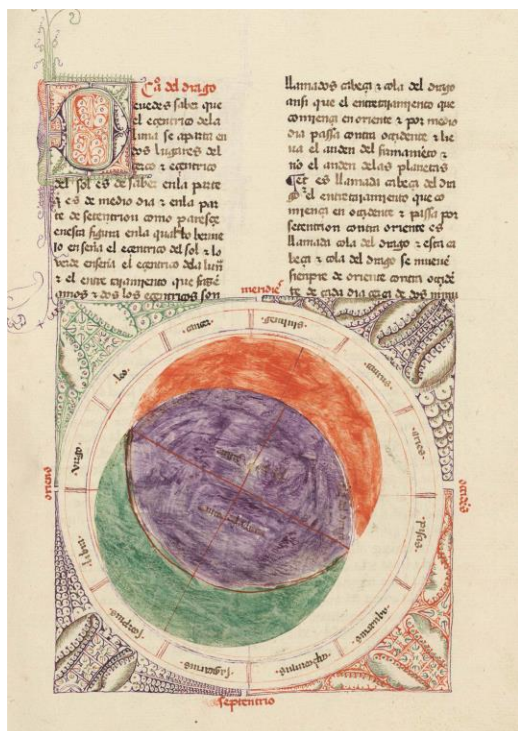 Cª del drago
Puedes saber que
el egentrico dela
luna se aparta en
dos lugares del
çerco z egentrico
del sol es de saber enla parte
q̃ es de medio dia z enla par
te de setentrion como paresçe
enesta figura enla qual lo berme
jo enseña el egentrico del sol z lo
verde enseña el egentrico dela luna
z el entretajamiento que fazẽ
amos z dos los egentricos son
llamados cabeça z cola del drago
ansi que el entretajamiento que
comiença en oriente z por medio
dia passa contra oçidente z lie
va el anden del firmamẽto z
no el anden delas planetas
Et es llamada cabeça del dra
go z el entretajamiento que co
miença en oçidente z passa por
setentrion contra oriente es
llamada cola del drago z esta ca
beça z cola del drago se mueve
sienpre de oriente contra oçidẽ
te de cada dia çerca de dos minu
meridies
geminis
taurus
aries
pisçis
aquarius
capicornius
sagitarius
scorpius
libra
virgo
leo
cancer
oriens
septentrio